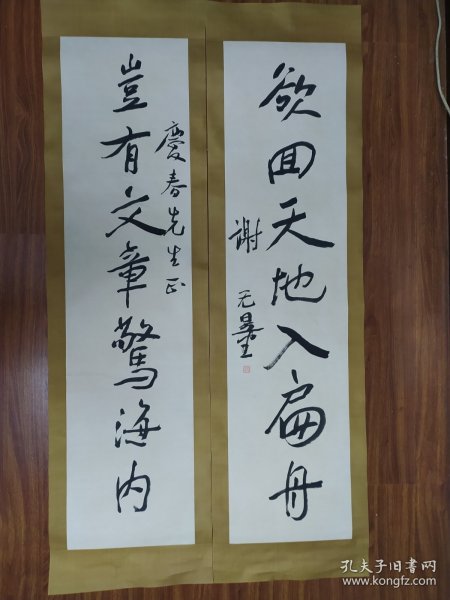 欲回天地入扁舟
謝无量
豈有文章驚海内
慶春先生正
孔夫子旧书网
www.kongfz.com